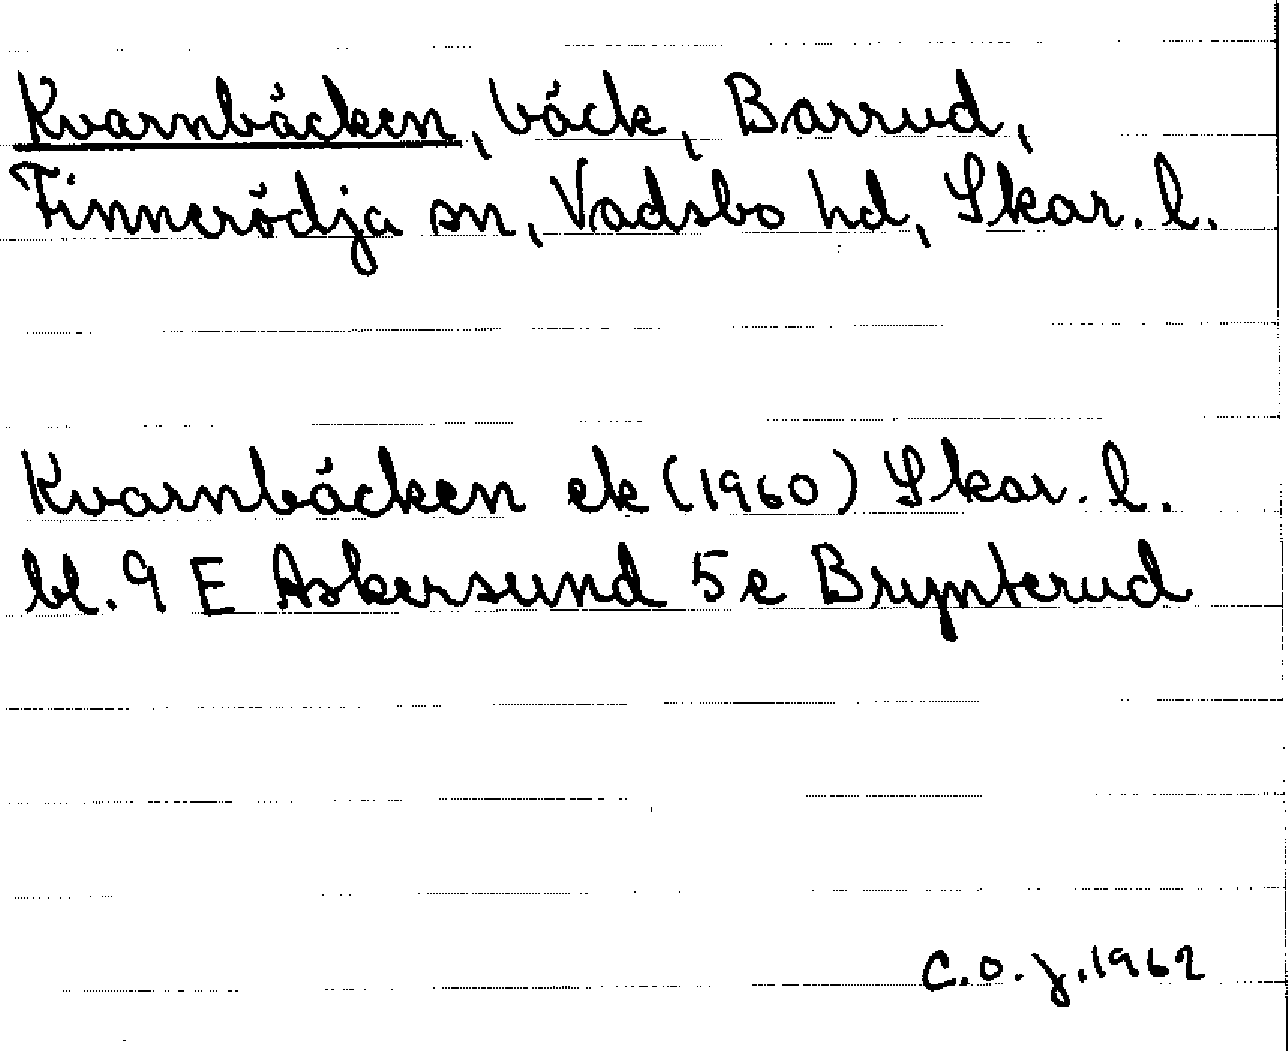 Kvarnbäcken, bäck, Barrud,
Finnerödja sn, Vadsbo hd, Skar. l.
Kvarnbäcken ek (1960) Skar. l.
bl. 9 E Askersund 5 e Brynterud
C.O.J. 1962